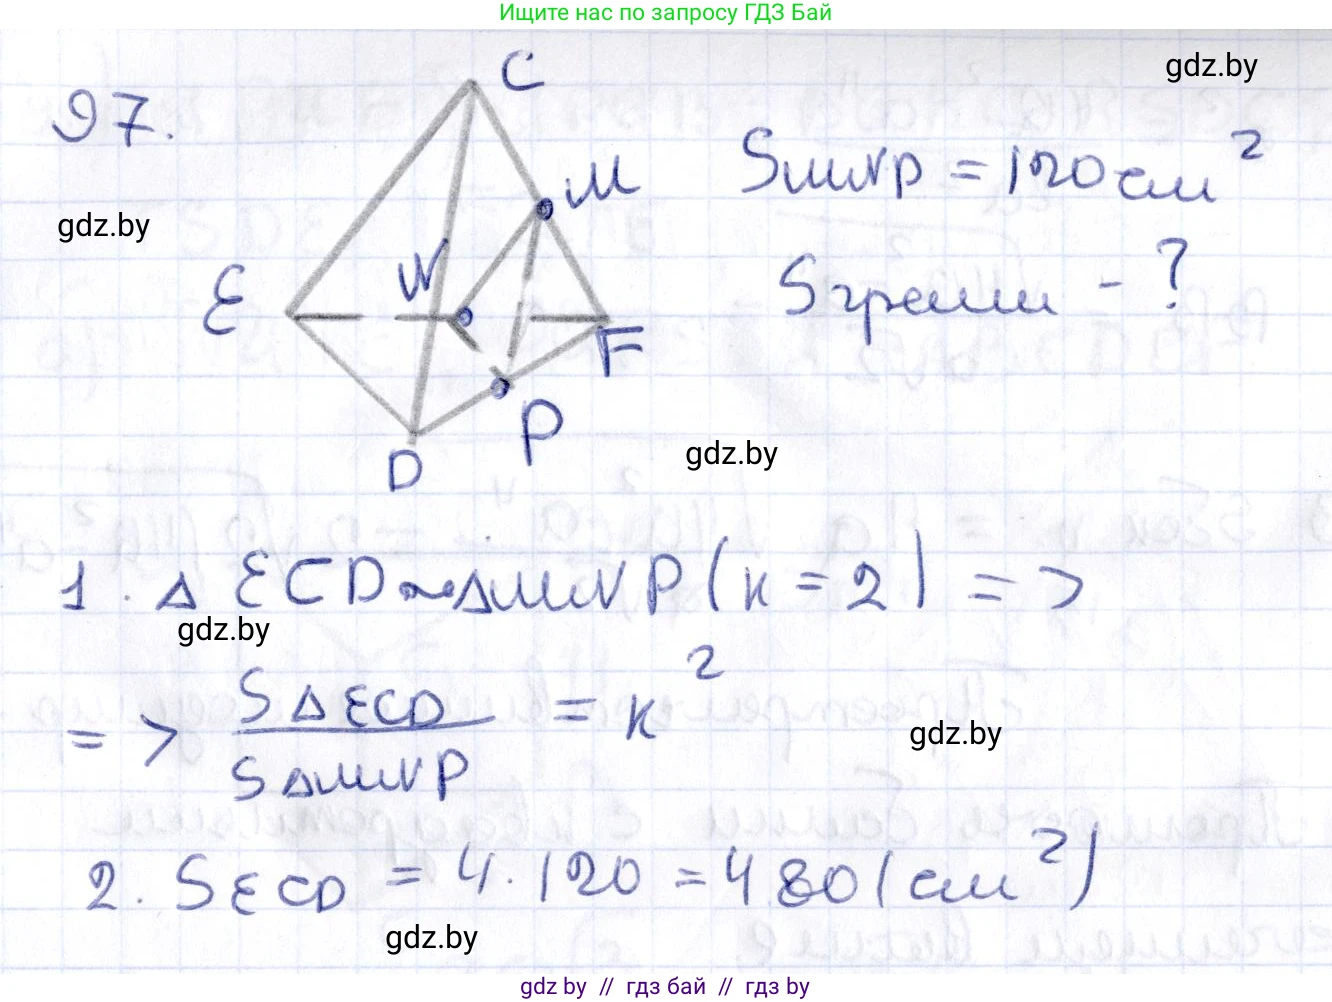 Ищите нас по запросу ГДЗ Бай
gdz.by
97.
C
M
SMNP = 120 см²
gdz.by
N
E
Sграни - ?
F
P
gdz.by
D
1. △ ECD ~ △MNP (к = 2) =>
gdz.by
=> S△ECD / S△MNP = к²
gdz.by
2. SECD = 4 · 120 = 480 (см²)
gdz.by
gdz by // гдз бай // гдз by